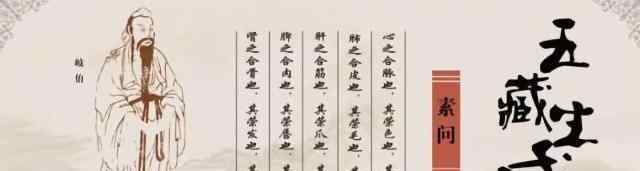 五藏生
素问
心之合脉也。其荣色也。其
肺之合皮也。其荣毛也。其
肝之合筋也。其荣爪也。其
脾之合肉也。其荣唇也。其
肾之合骨也。其荣发也。其
岐伯